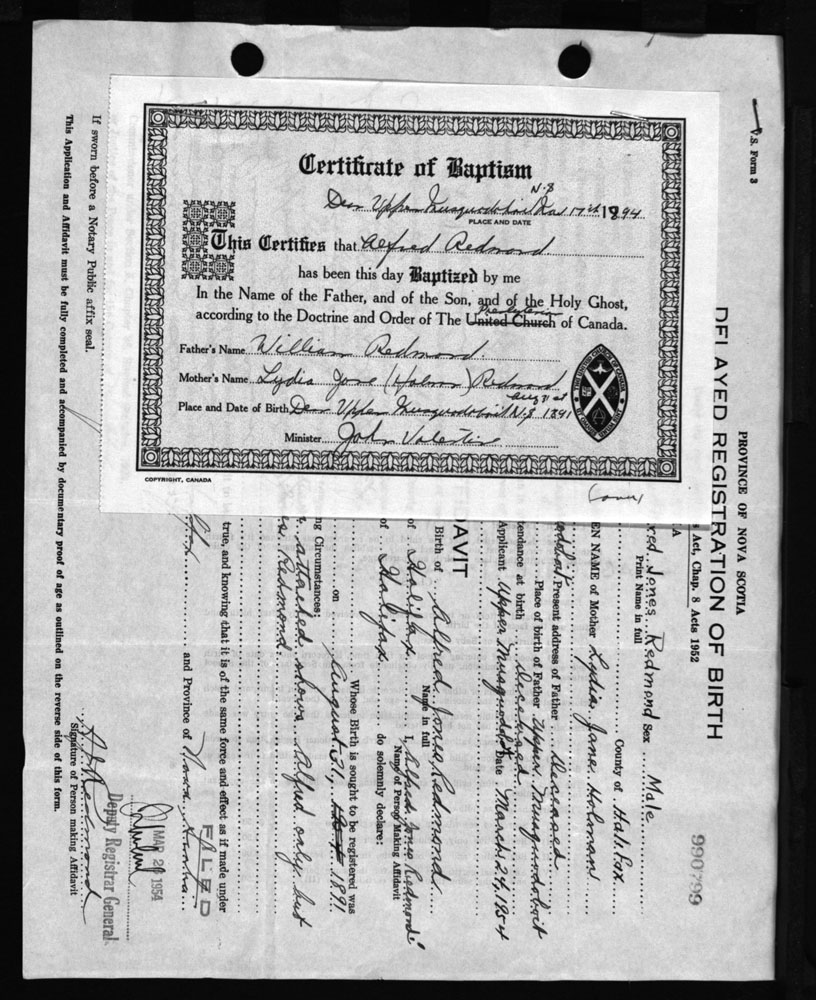 Certificate of Baptism
Dean Upper Musquodoboit N.S. Nov 17th 1894
PLACE AND DATE
This Certifies that Alfred Redmond
has been this day Baptized by me
In the Name of the Father, and of the Son, and of the Holy Ghost,
Presbyterian
according to the Doctrine and Order of The United Church of Canada.
Father's Name William Redmond.
Mother's Name Lydia Jane (Holman) Redmond
Aug 31st
Place and Date of Birth Dean Upper Musquodoboit N.S 1891
Minister John Valentine
COPYRIGHT, CANADA
(over)
V.S. Form 3
990799
PROVINCE OF NOVA SCOTIA
DELAYED REGISTRATION OF BIRTH
s Act, Chap. 8 Acts 1952
red Jones Redmond Sex Male
Print Name in full
County of Halifax
EN NAME of Mother Lydia Jane Holman
Present address of Father Deceased
Place of birth of Father Upper Musquodoboit
tendance at birth Deceased
Applicant Upper Musquodoboit Date March 24, 1954
DAVIT
Birth of Alfred Jones Redmond
Name in full
of Halifax I, Alfred Jones Redmond
Name of Person Making Affidavit
of Halifax do solemnly declare:
Whose Birth is sought to be registered was
on August 31, 1891
ng Circumstances:
attached shows Alfred only but
Redmond.
true, and knowing that it is of the same force and effect as if made under
FILED
and Province of Nova Scotia
MAR 29 1954
Deputy Registrar General
A J Redmond
Signature of Person making Affidavit
If sworn before a Notary Public affix seal.
This Application and Affidavit must be fully completed and accompanied by documentary proof of age as outlined on the reverse side of this form.